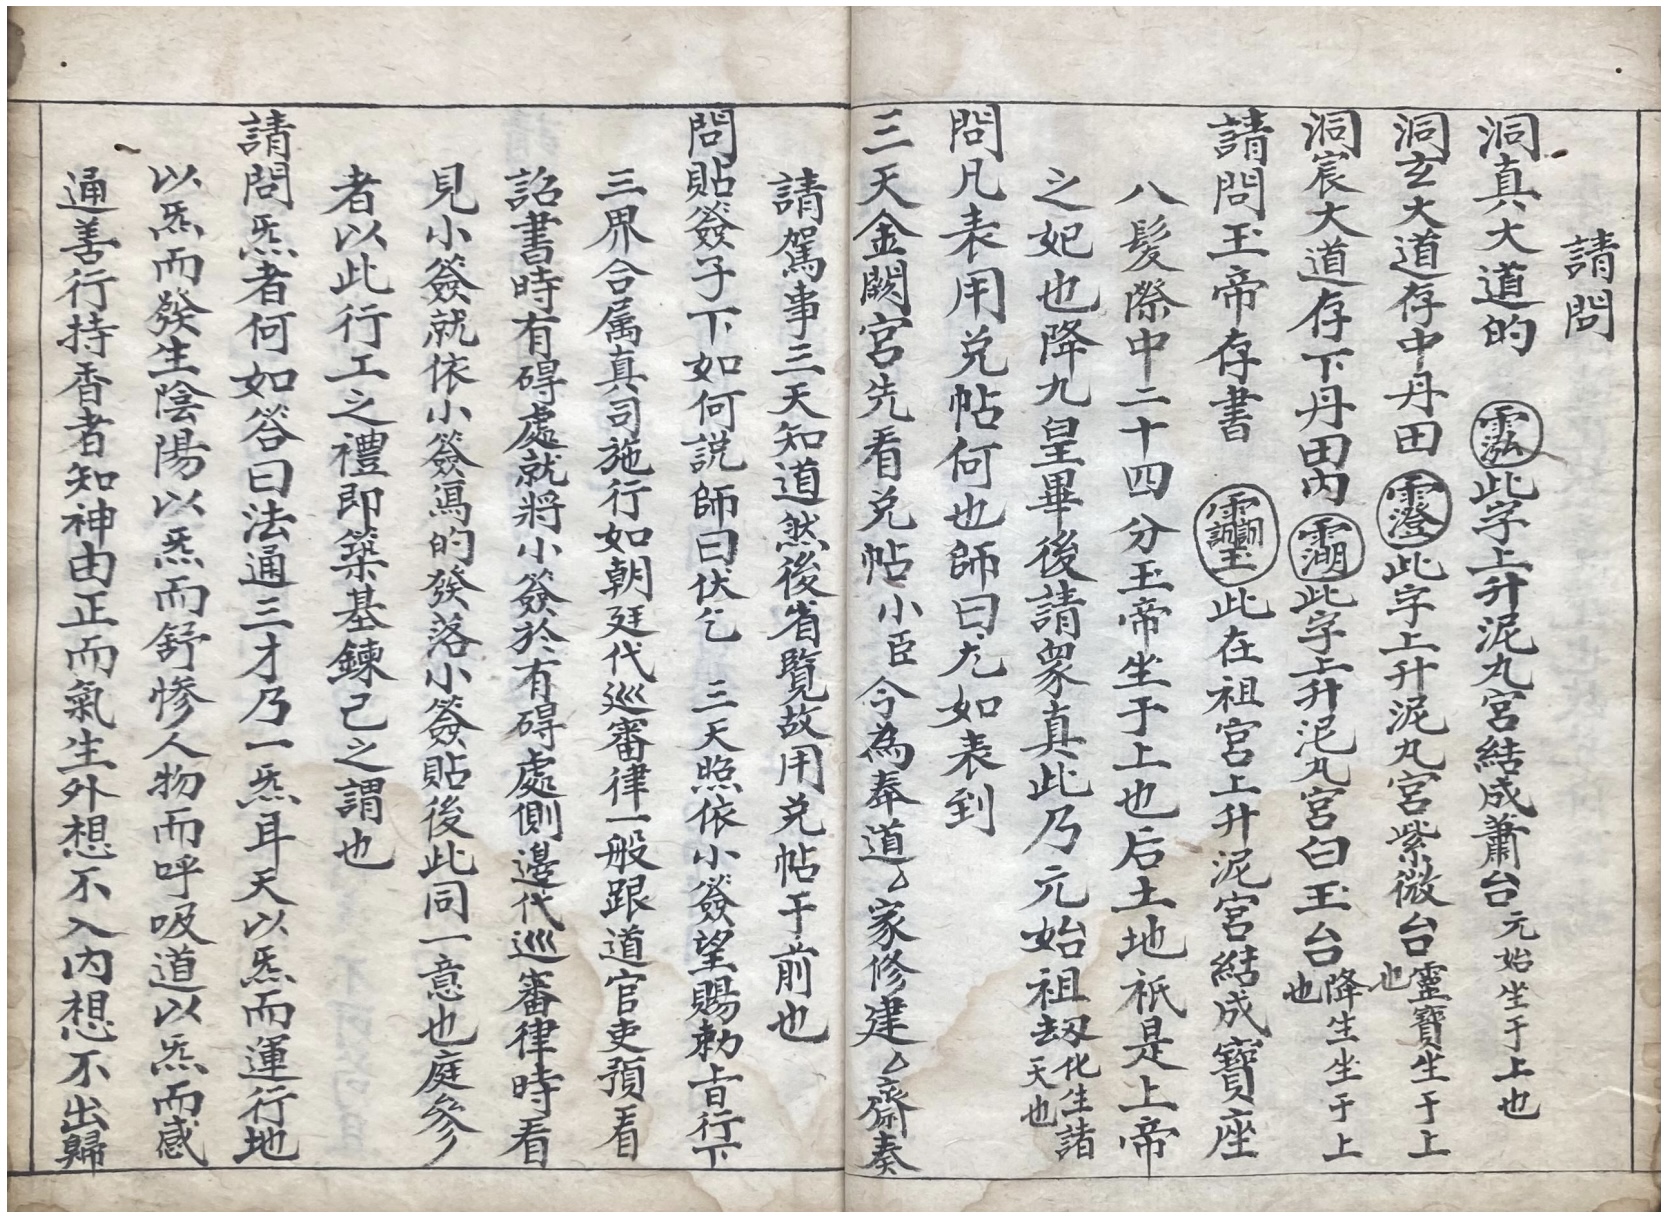 請問
洞真大道的 此字上升泥丸宮結成蕭台元始坐于上也
洞玄大道存中丹田 此字上升泥丸宮紫微台靈寶生于上也
洞宸大道存下丹田內 此字上升泥丸宮白玉台降生坐于上也
請問玉帝存書 此在祖宮上升泥宮結成寶座
八髮際中二十四分玉帝坐于上也后土地祇是上帝
之妃也降九皇畢後請眾真此乃元始祖刼化生諸天也
問凡表用兑帖何也師曰凢如表到
三天金闕宮先看兑帖小臣今為奉道厶家修建厶齋奏
請駕事三天知道然後省覽故用兑帖于前也
問貼簽子下如何說師曰伏乞 三天照依小簽望賜勅旨行下
三界合属真司施行如朝廷代巡審律一般跟道官吏預看
詔書時有碍處就將小簽於有碍處側邊代巡審律時看
見小簽就依小簽寫的發落小簽貼後此同一意也庭參
者以此行工之禮即築基鍊己之謂也
請問炁者何如答曰法通三才乃一炁耳天以炁而運行地
以炁而發生陰陽以炁而舒慘人物而呼吸道以炁而感
通善行持香者知神由正而氣生外想不入內想不出歸